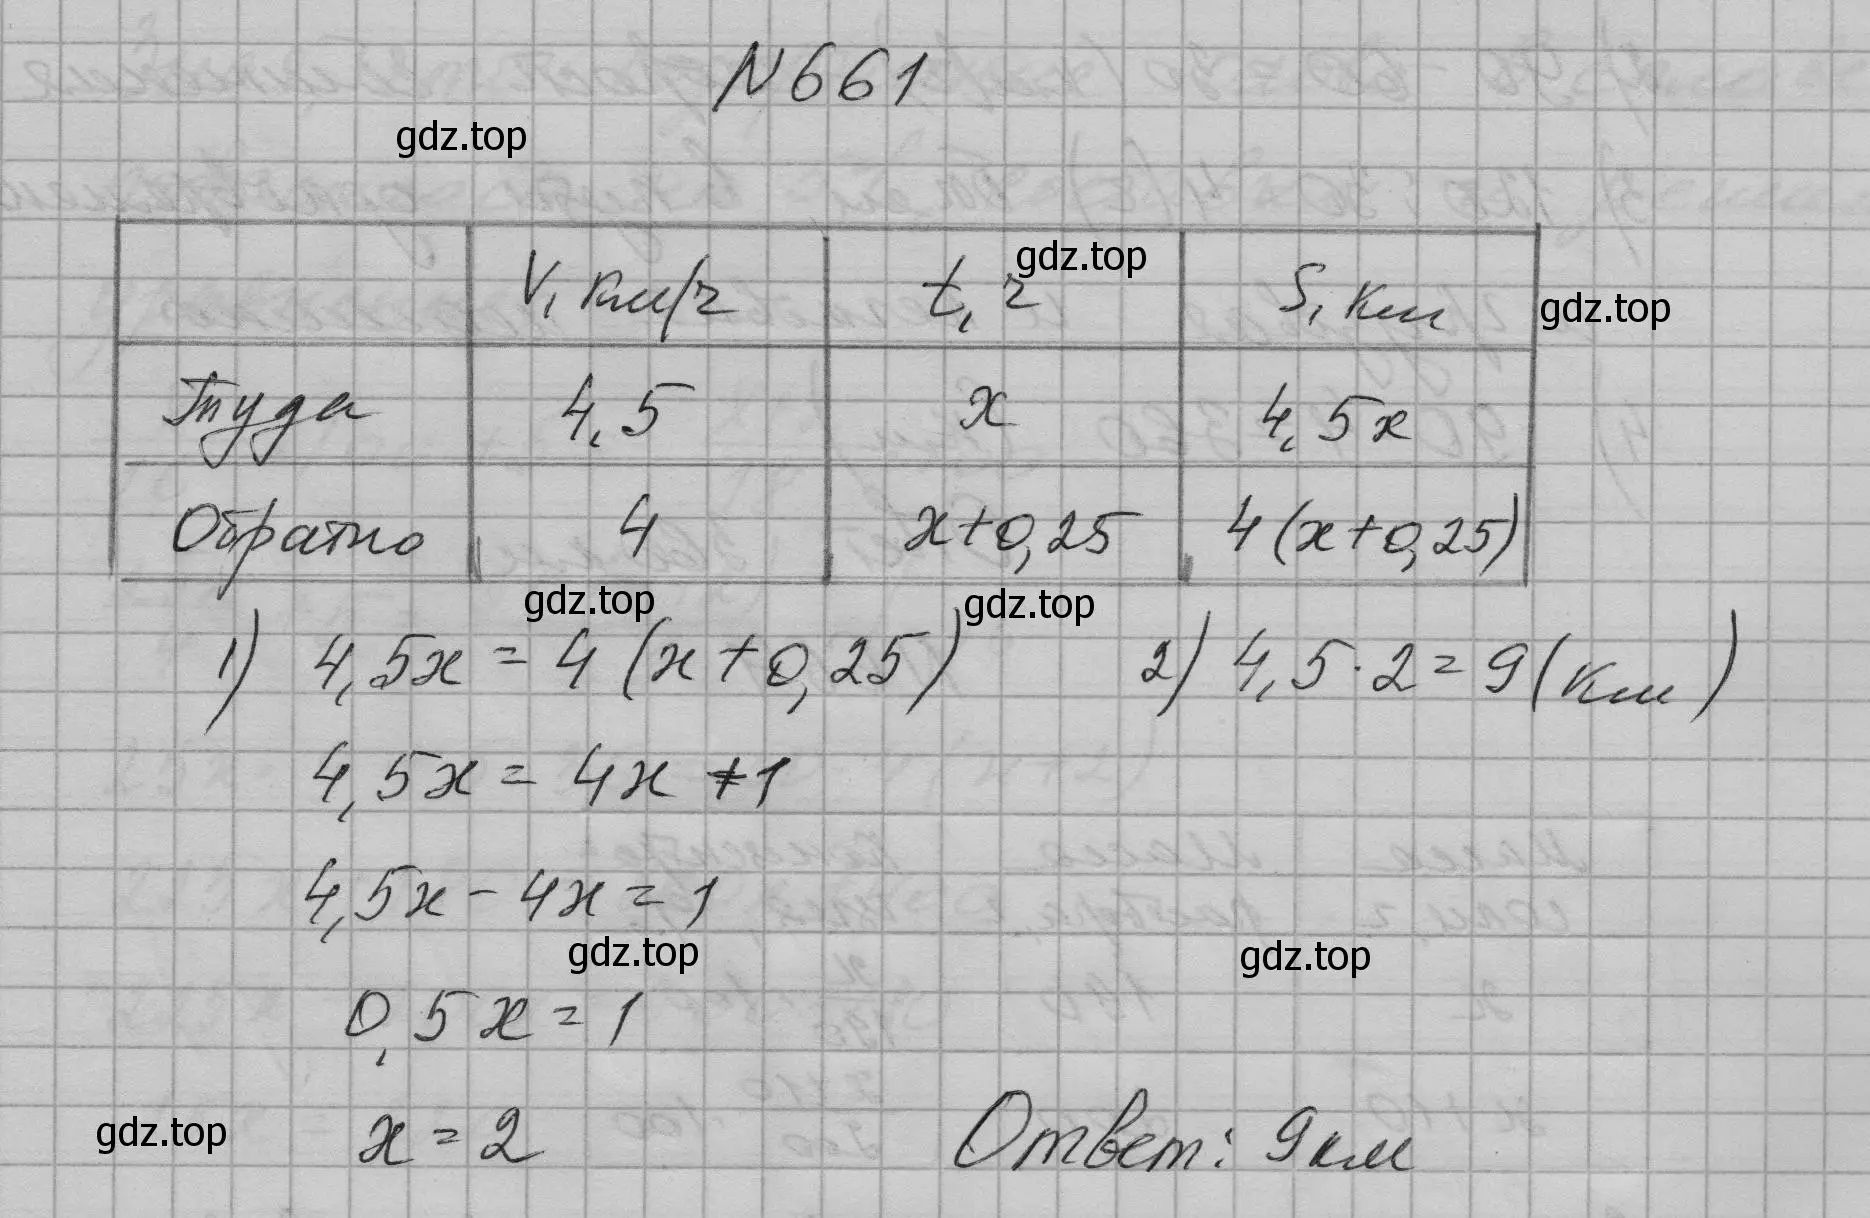 N 661
gdz.top
V, км/ч t, ч gdz.top S, км gdz.top
Туда 4,5 x 4,5x
Обратно 4 x+0,25 4(x+0,25)
gdz.top gdz.top
1) 4,5x = 4(x+0,25) 2) 4,5·2=9(км)
4,5x = 4x +1
4,5x - 4x = 1
gdz.top gdz.top
0,5x = 1
gdz.top x = 2 Ответ: 9км